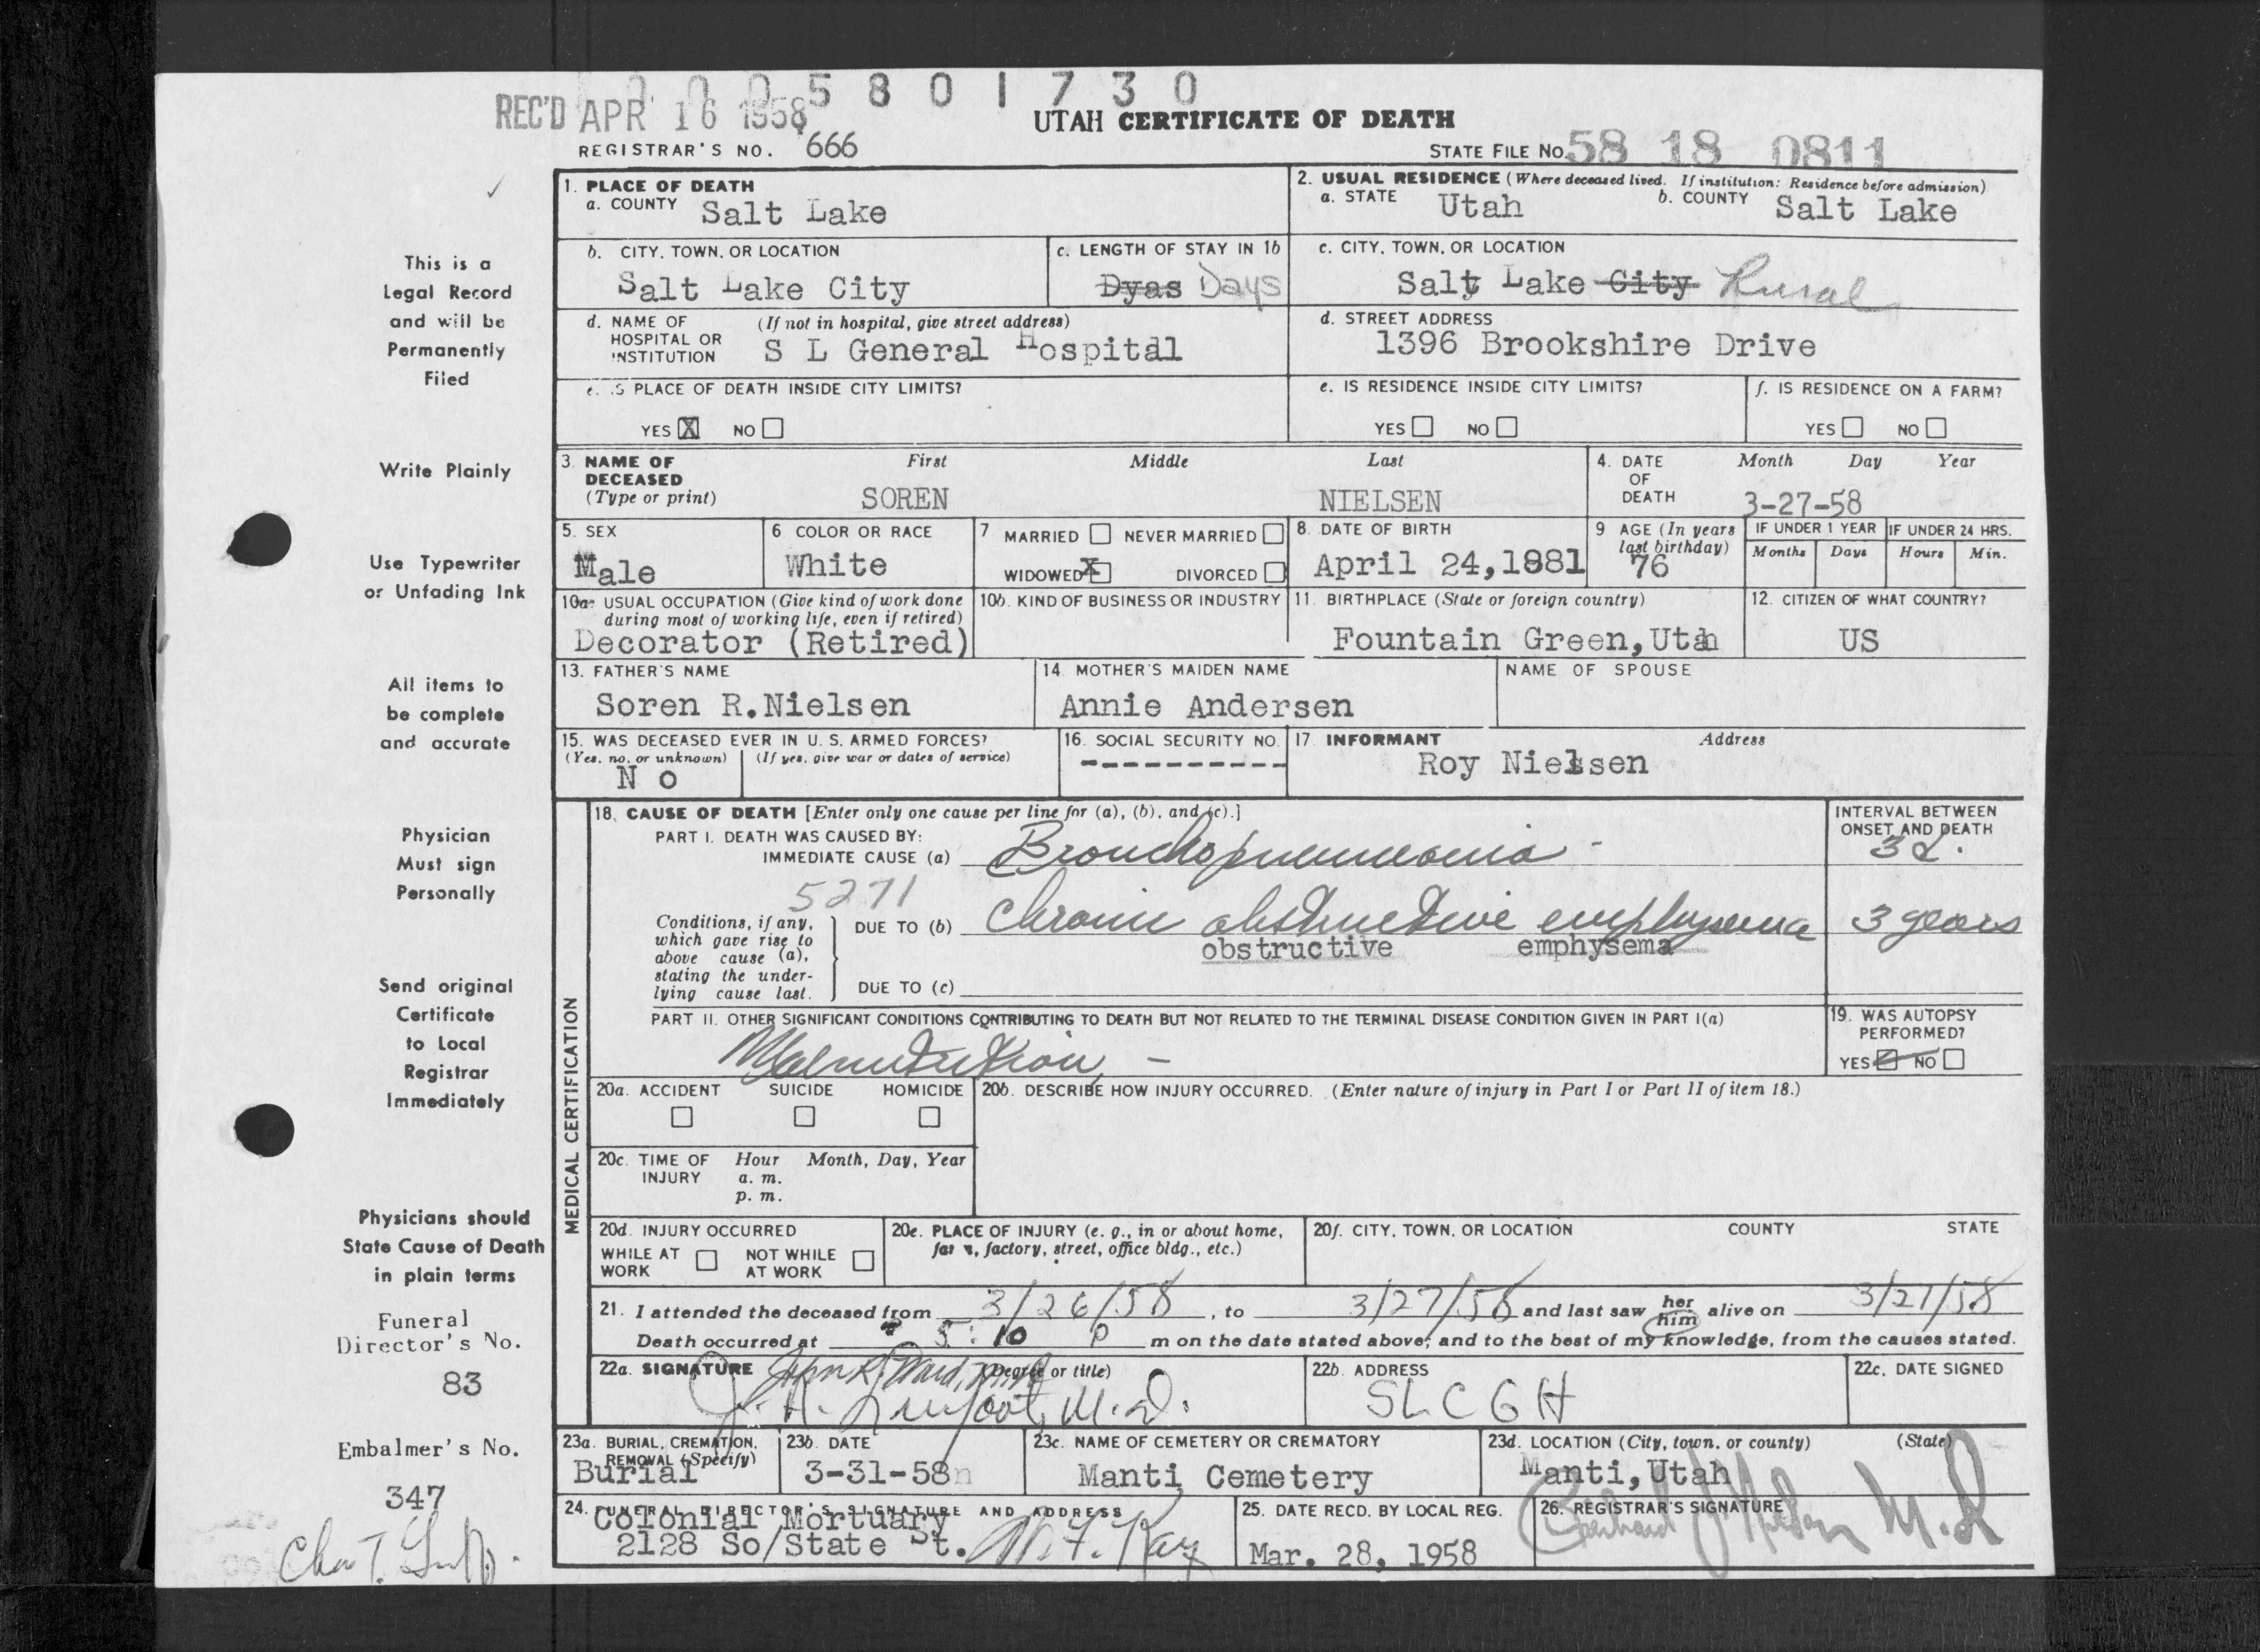 0005801730
REC'D APR 16 1958
UTAH CERTIFICATE OF DEATH
REGISTRAR'S NO. 666
STATE FILE NO. 58 18 0811
This is a
Legal Record
and will be
Permanently
Filed
Write Plainly
Use Typewriter
or Unfading Ink
All items to
be complete
and accurate
Physician
Must sign
Personally
Send original
Certificate
to Local
Registrar
Immediately
Physicians should
State Cause of Death
in plain terms
Funeral
Director's No.
83
Embalmer's No.
347
1. PLACE OF DEATH
a. COUNTY Salt Lake
2. USUAL RESIDENCE (Where deceased lived. If institution: Residence before admission)
a. STATE Utah b. COUNTY Salt Lake
b. CITY, TOWN, OR LOCATION
Salt Lake City
c. LENGTH OF STAY IN 1b
Dyas Days
c. CITY, TOWN, OR LOCATION
Salt Lake City Rural
d. NAME OF (If not in hospital, give street address)
HOSPITAL OR
INSTITUTION S L General Hospital
d. STREET ADDRESS
1396 Brookshire Drive
e. IS PLACE OF DEATH INSIDE CITY LIMITS?
YES X NO
e. IS RESIDENCE INSIDE CITY LIMITS?
YES NO
f. IS RESIDENCE ON A FARM?
YES NO
3. NAME OF First Middle Last
DECEASED
(Type or print) SOREN NIELSEN
4. DATE Month Day Year
OF
DEATH 3-27-58
5. SEX
Male
6 COLOR OR RACE
White
7 MARRIED NEVER MARRIED
WIDOWED X DIVORCED
8. DATE OF BIRTH
April 24,1881
9 AGE (In years
last birthday)
76
IF UNDER 1 YEAR IF UNDER 24 HRS.
Months Days Hours Min.
10a. USUAL OCCUPATION (Give kind of work done
during most of working life, even if retired)
Decorator (Retired)
10b. KIND OF BUSINESS OR INDUSTRY
11. BIRTHPLACE (State or foreign country)
Fountain Green,Utah
12. CITIZEN OF WHAT COUNTRY?
US
13. FATHER'S NAME
Soren R.Nielsen
14. MOTHER'S MAIDEN NAME
Annie Andersen
NAME OF SPOUSE
15. WAS DECEASED EVER IN U. S. ARMED FORCES?
(Yes, no, or unknown) (If yes, give war or dates of service)
N o
16. SOCIAL SECURITY NO.
----------
17. INFORMANT Address
Roy Nielsen
MEDICAL CERTIFICATION
18. CAUSE OF DEATH [Enter only one cause per line for (a), (b), and (c).]
PART I. DEATH WAS CAUSED BY:
IMMEDIATE CAUSE (a) Bronchopneumonia -
INTERVAL BETWEEN
ONSET AND DEATH
3 d.
5271
Conditions, if any,
which gave rise to
above cause (a),
stating the under-
lying cause last.
DUE TO (b) Chronic obstructive emphysema 3 years
obstructive emphysema
DUE TO (c)
PART II. OTHER SIGNIFICANT CONDITIONS CONTRIBUTING TO DEATH BUT NOT RELATED TO THE TERMINAL DISEASE CONDITION GIVEN IN PART I(a)
Malnutrition -
19. WAS AUTOPSY
PERFORMED?
YES NO
20a. ACCIDENT SUICIDE HOMICIDE
20b. DESCRIBE HOW INJURY OCCURRED. (Enter nature of injury in Part I or Part II of item 18.)
20c. TIME OF Hour Month, Day, Year
INJURY a. m.
p. m.
20d. INJURY OCCURRED
WHILE AT NOT WHILE
WORK AT WORK
20e. PLACE OF INJURY (e. g., in or about home,
farm, factory, street, office bldg., etc.)
20f. CITY, TOWN, OR LOCATION COUNTY STATE
21. I attended the deceased from 3/26/58, to 3/27/58 and last saw her him alive on 3/27/58
Death occurred at 5:10 P m on the date stated above; and to the best of my knowledge, from the causes stated.
22a. SIGNATURE (Degree or title)
John R. Ward, M.D.
M.D.
22b. ADDRESS
SLCGH
22c. DATE SIGNED
23a. BURIAL, CREMATION,
REMOVAL (Specify)
Burial
23b. DATE
3-31-58
23c. NAME OF CEMETERY OR CREMATORY
Manti Cemetery
23d. LOCATION (City, town, or county) (State)
Manti,Utah
24. FUNERAL DIRECTOR'S SIGNATURE AND ADDRESS
Colonial Mortuary
2128 So/State St.
25. DATE RECD. BY LOCAL REG.
Mar. 28, 1958
26. REGISTRAR'S SIGNATURE